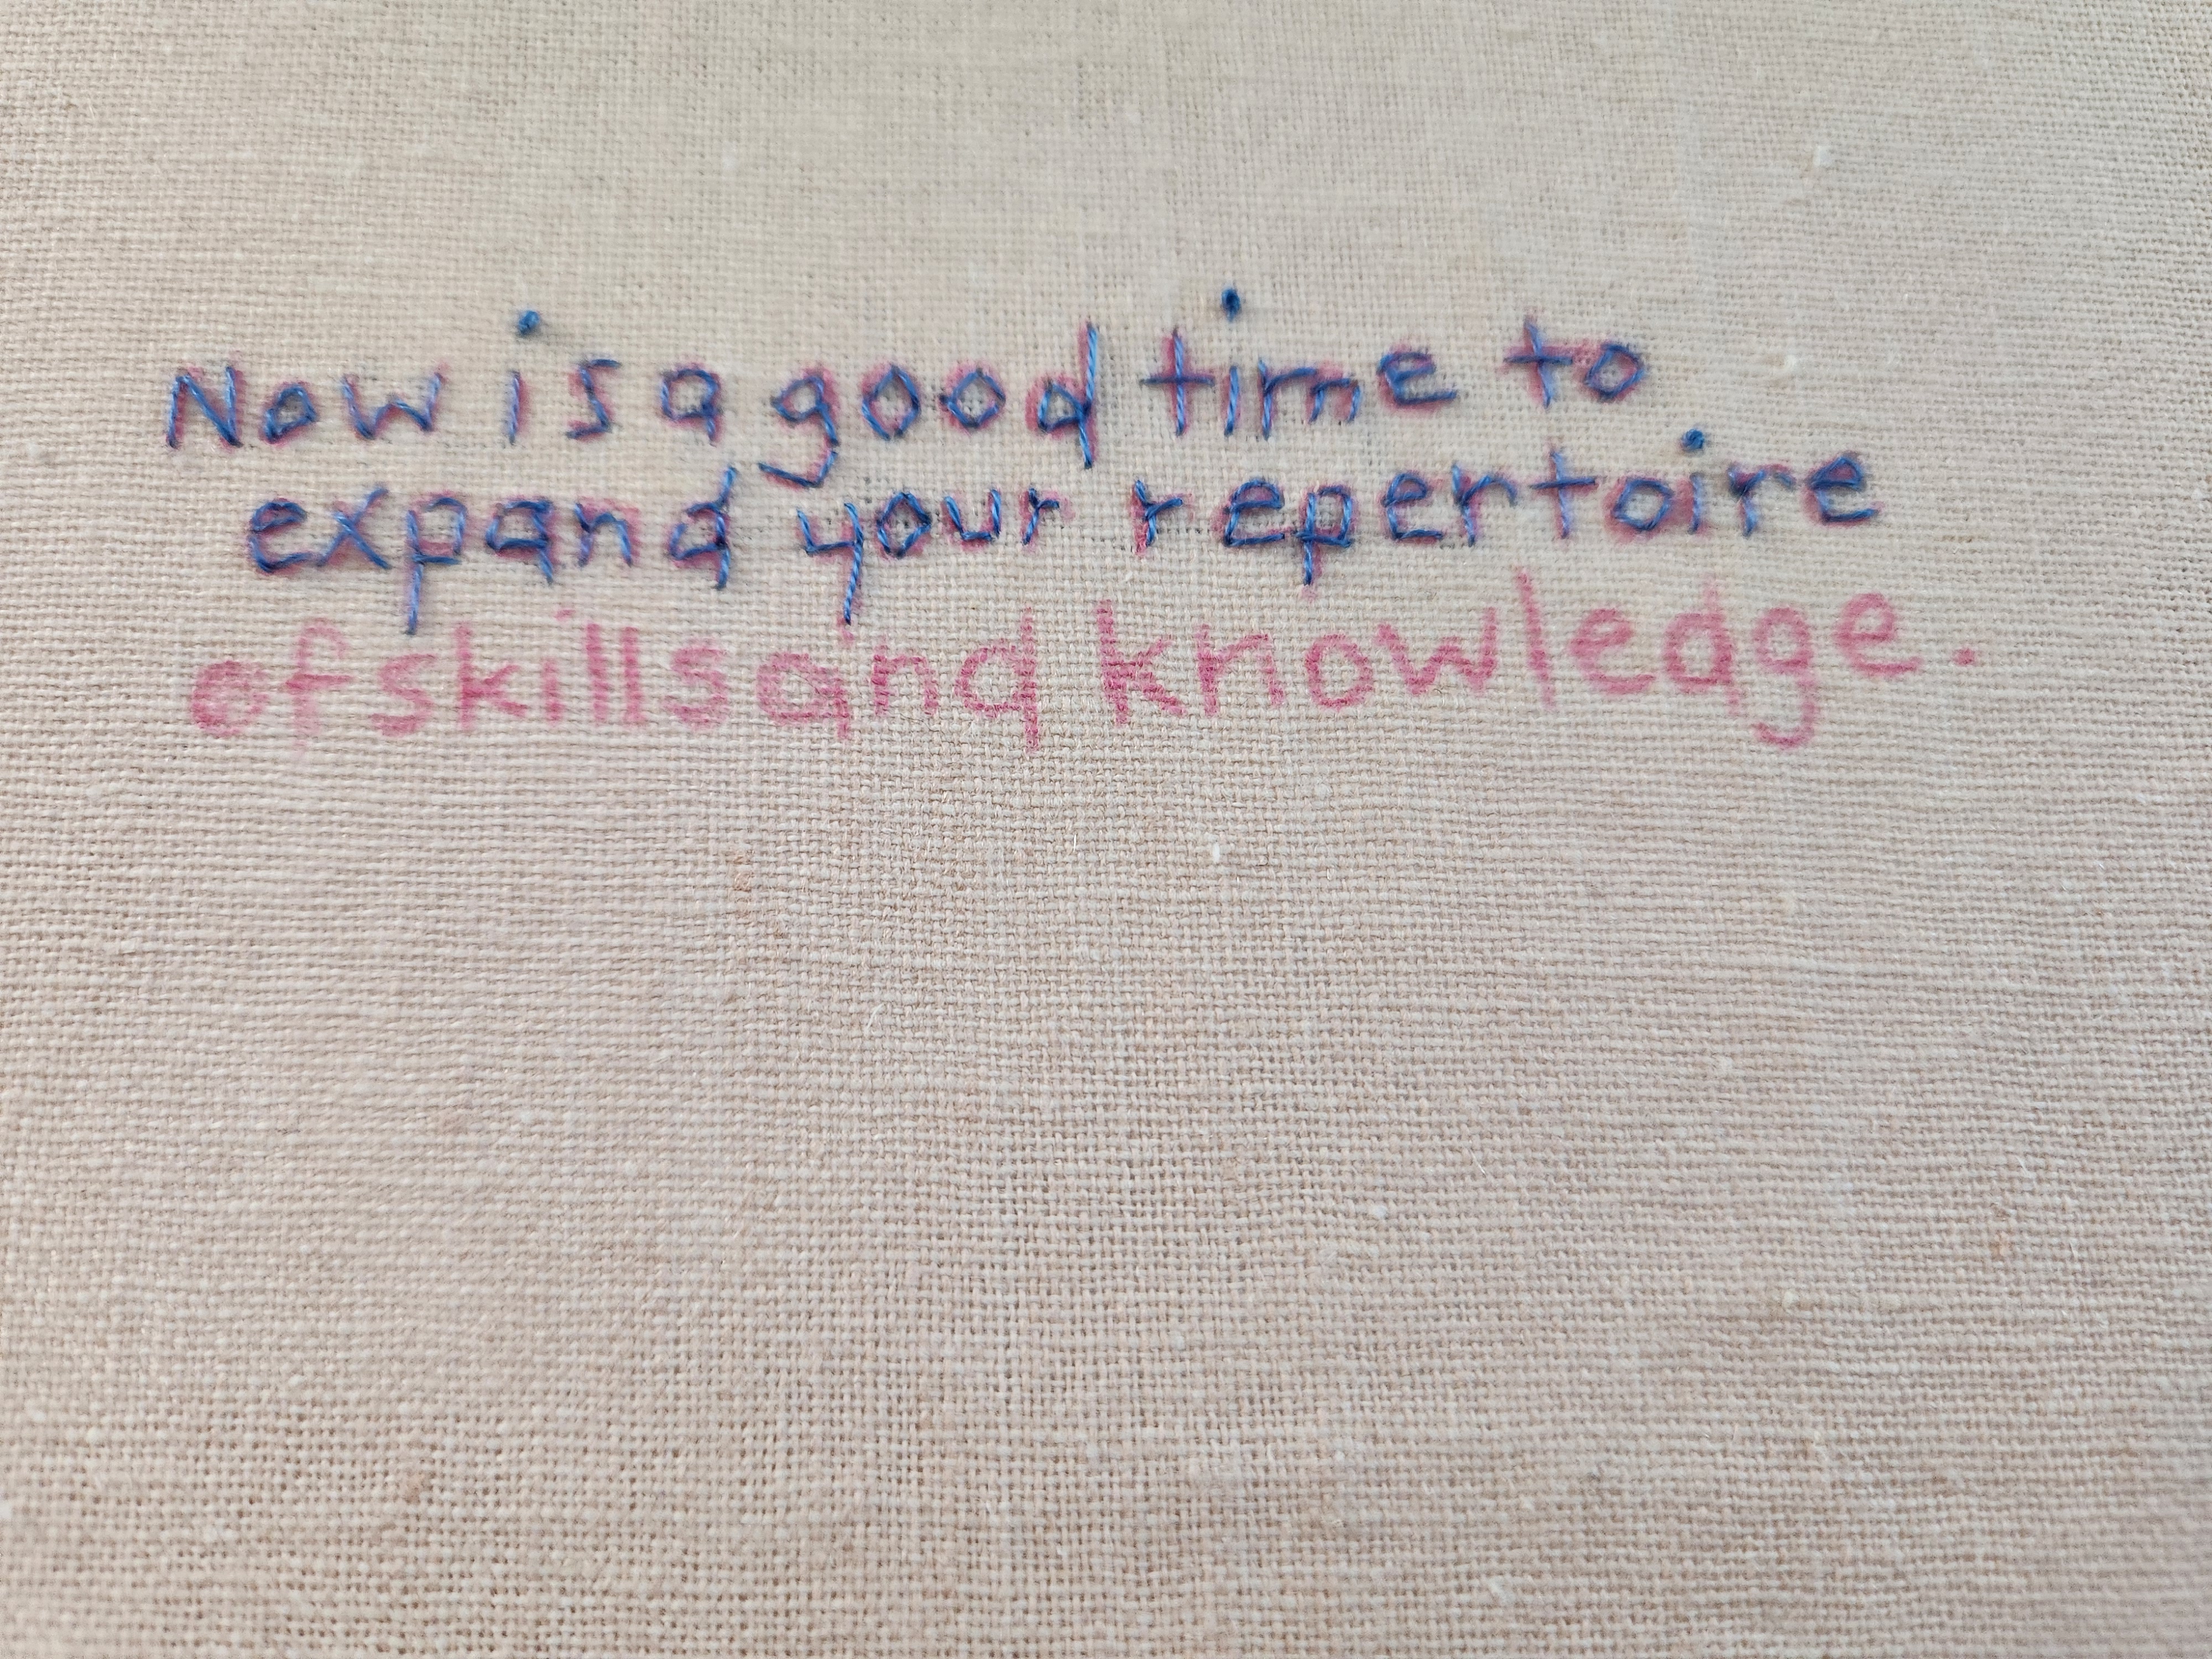 Now is a good time to
expand your repertoire
of skills and knowledge.